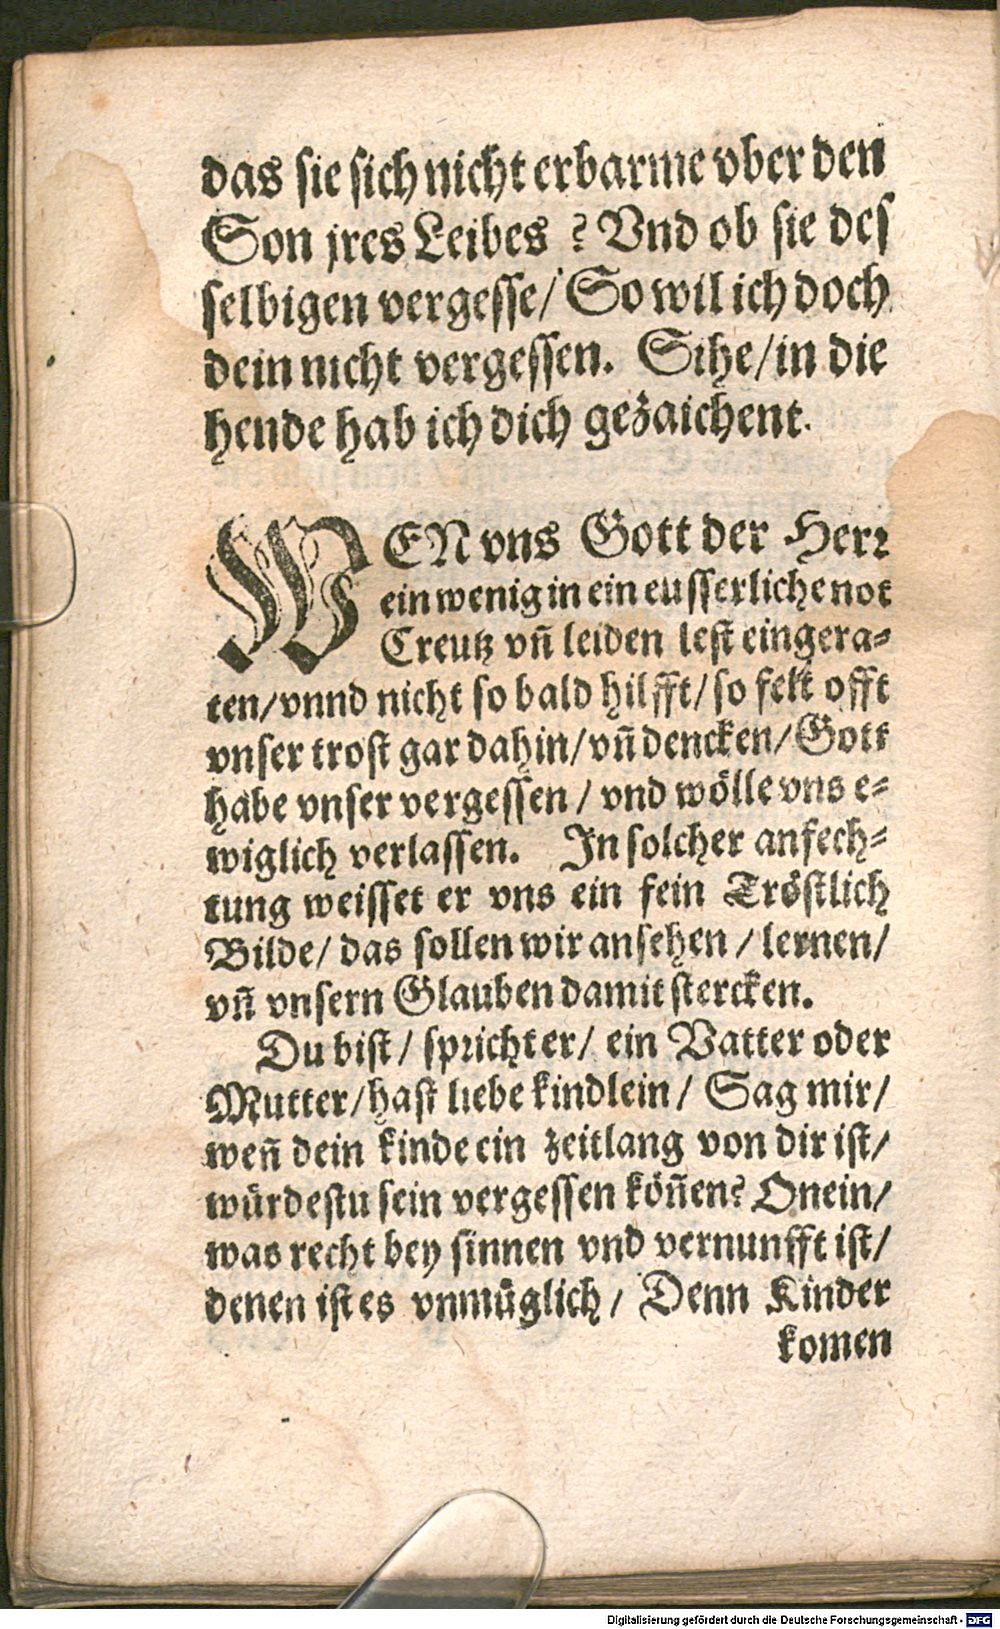 das sie sich nicht erbarme vber den
Son jres Leibes ? Vnd ob sie des
selbigen vergesse/ So wil ich doch
dein nicht vergessen. Sihe/in die
hende hab ich dich gezaichent.
WEN vns Gott der Herr
ein wenig in ein eusserliche not
Creutz vñ leiden lest eingera⸗
ten/vnnd nicht so bald hilfft/so felt offt
vnser trost gar dahin/vñ dencken/Gott
habe vnser vergessen / vnd wölle vns e⸗
wiglich verlassen. In solcher anfech⸗
tung weisset er vns ein fein Tröstlich
Bilde/ das sollen wir ansehen / lernen/
vñ vnsern Glauben damit stercken.
Du bist/ spricht er/ ein Vatter oder
Mutter/hast liebe kindlein/ Sag mir/
weñ dein kinde ein zeitlang von dir ist/
würdestu sein vergessen köñen? O nein/
was recht bey sinnen vnd vernunfft ist/
denen ist es vnmüglich/ Denn Kinder
komen
Digitalisierung gefördert durch die Deutsche Forschungsgemeinschaft - DFG